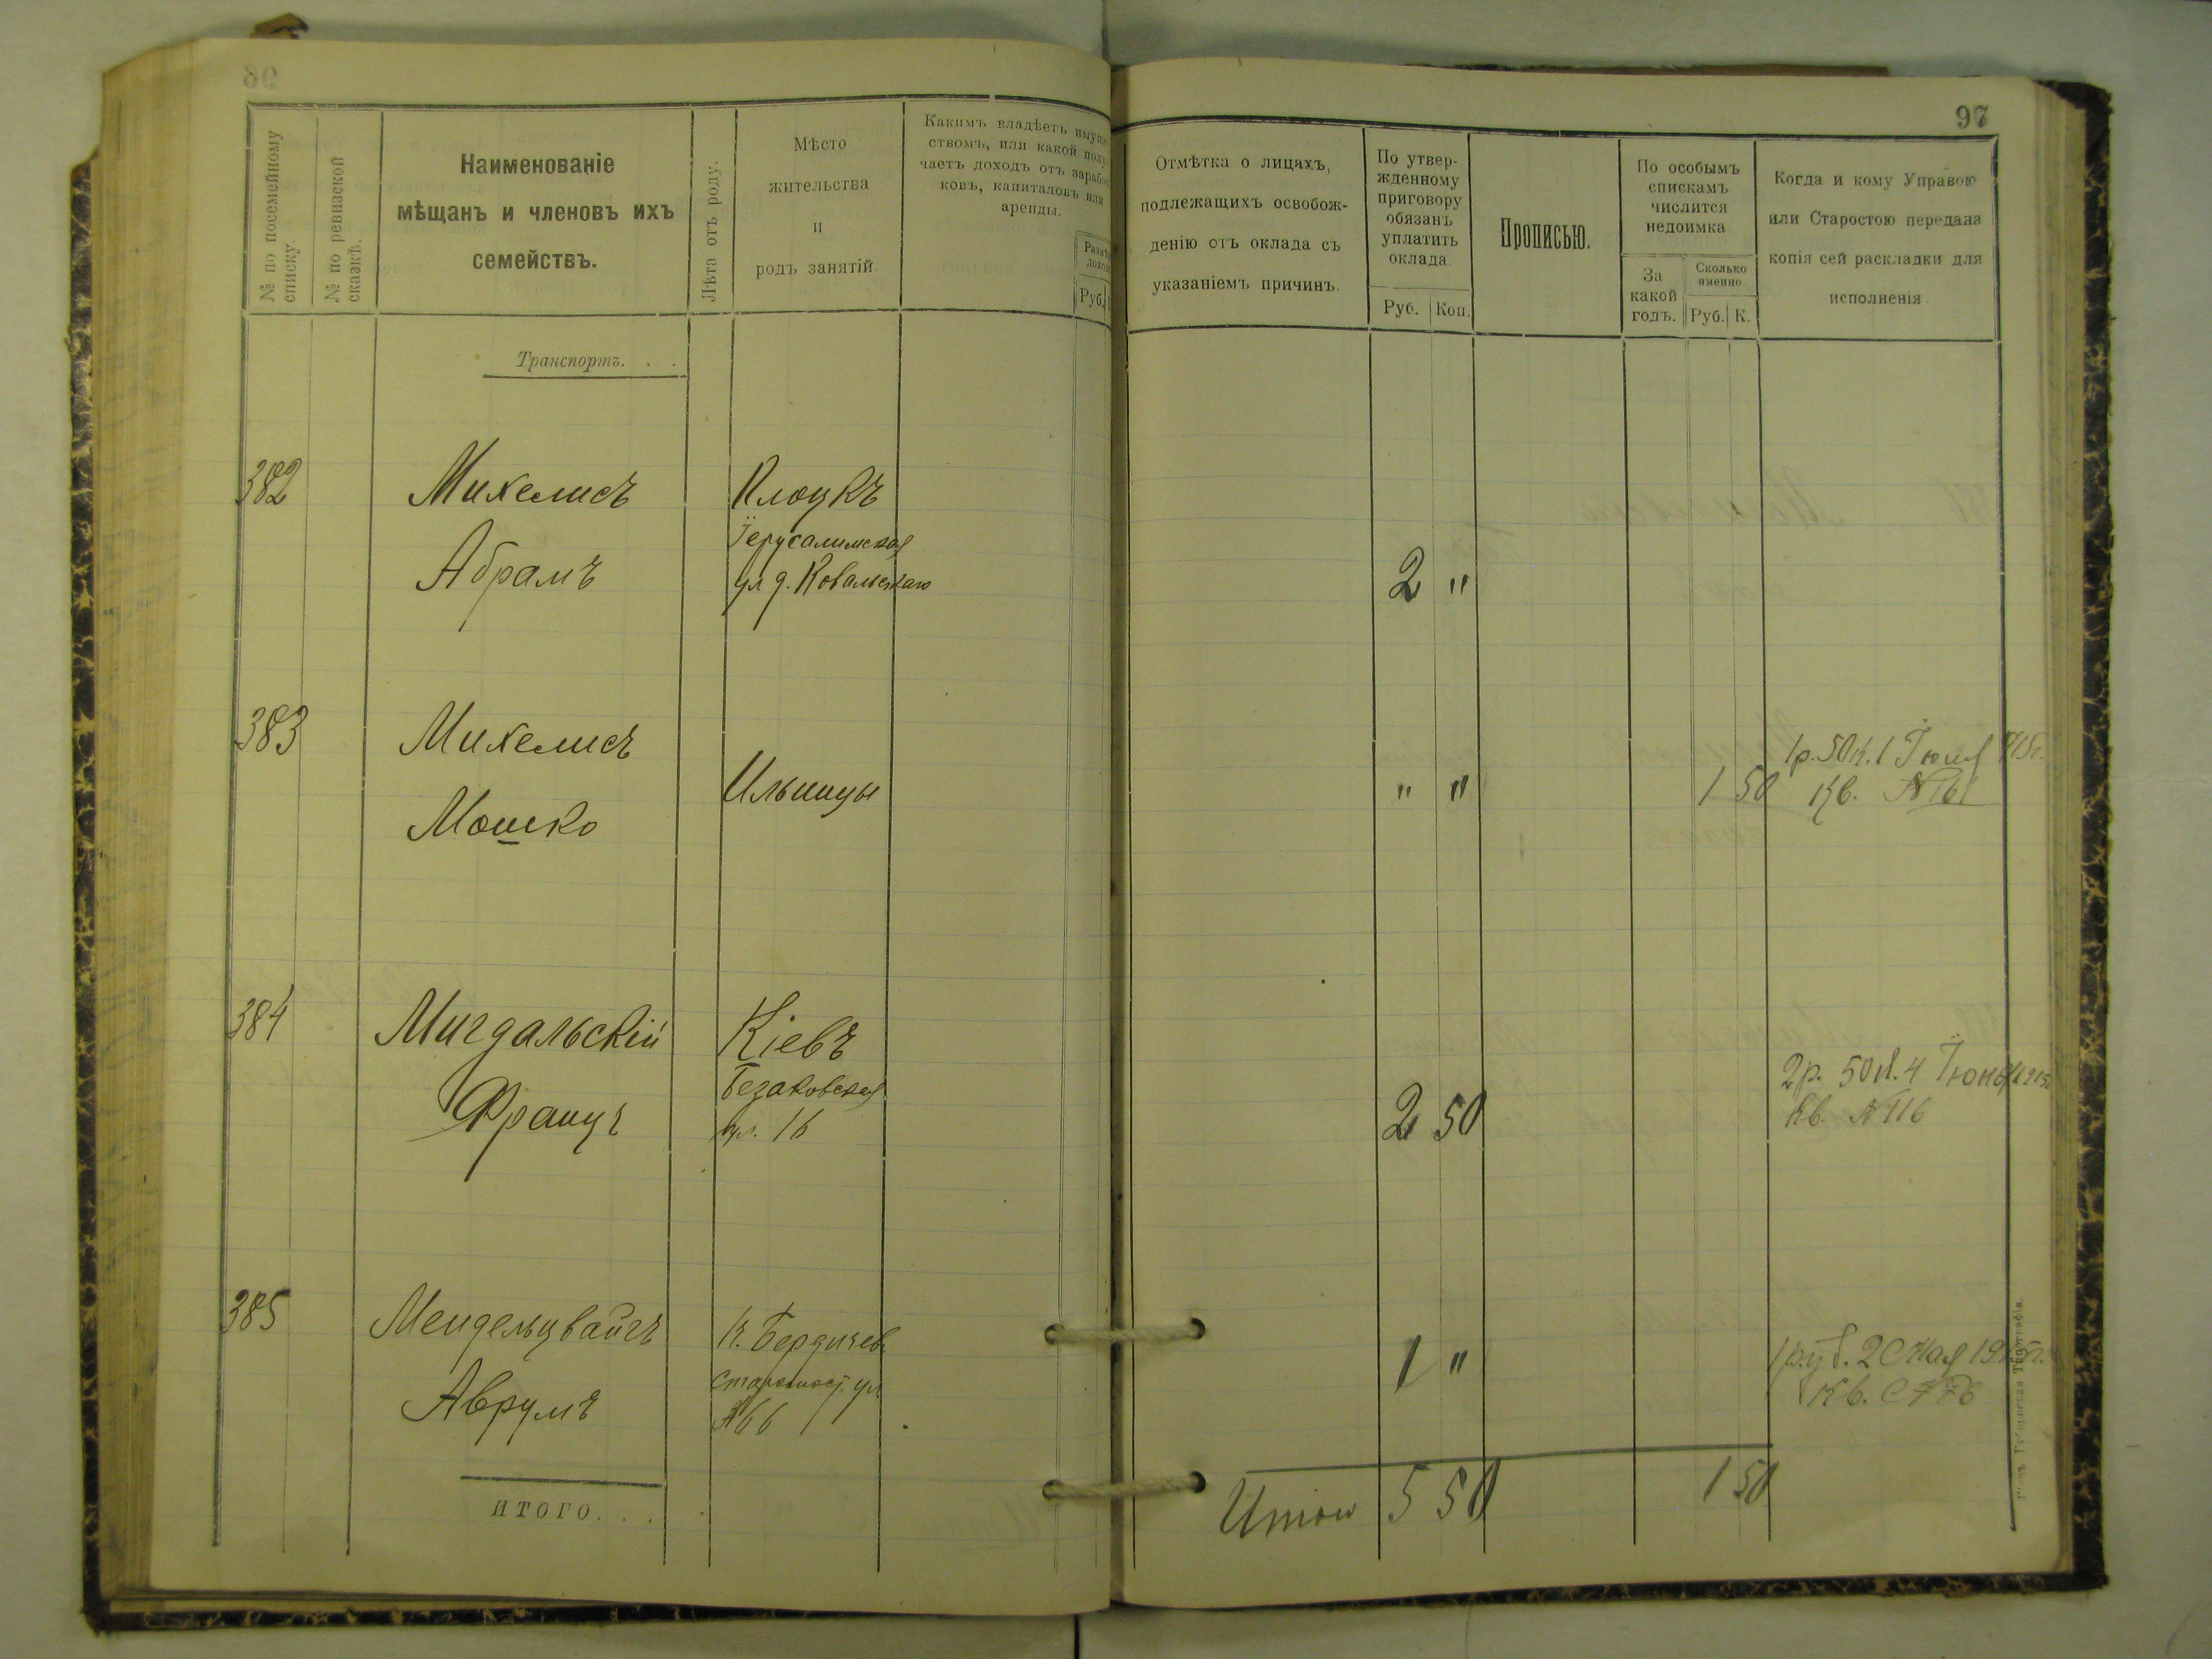 97
№ по посемейному
списку.
№ по ревизской
сказкѣ.
Наименованіе
мѣщанъ и членовъ ихъ
семействъ.
Лѣта отъ роду.
Мѣсто
жительства
и
родъ занятій
Какимъ владѣетъ имуще
ствомъ, или какой полу
чаетъ доходъ отъ заработ
ковъ, капиталовъ или
аренды.
Руб.
Отмѣтка о лицахъ,
подлежащихъ освобож-
денію отъ оклада съ
указаніемъ причинъ.
По утвер-
жденному
приговору
обязанъ
уплатить
оклада
Руб. Коп.
Прописью.
По особымъ
спискамъ
числится
недоимка
За
какой
годъ.
Сколько
именно
Руб. К.
Когда и кому Управою
или Старостою передана
копія сей раскладки для
исполненія
Транспортъ. . .
382 Михелисъ Плоцкъ
Іерусалимская
Абрамъ ул д. Ковальскаго 2 "
383 Михелисъ 1р. 50к. 1 Іюля 915г.
Ильинцы " " 1 50 Кв. № 161
Мошко
384 Мигдальскій Кіевъ
Безаковская 2р. 50к. 4 Іюня 1915г.
Францъ ул. 16 2 50 Кв. № 116
385 Мендельцвайгъ Бердичев
ул. 1 " 1 руб. 20 Мая 1915г.
Аврумъ №66 Кв.
ИТОГО. . .
Итого 5 50 1 50